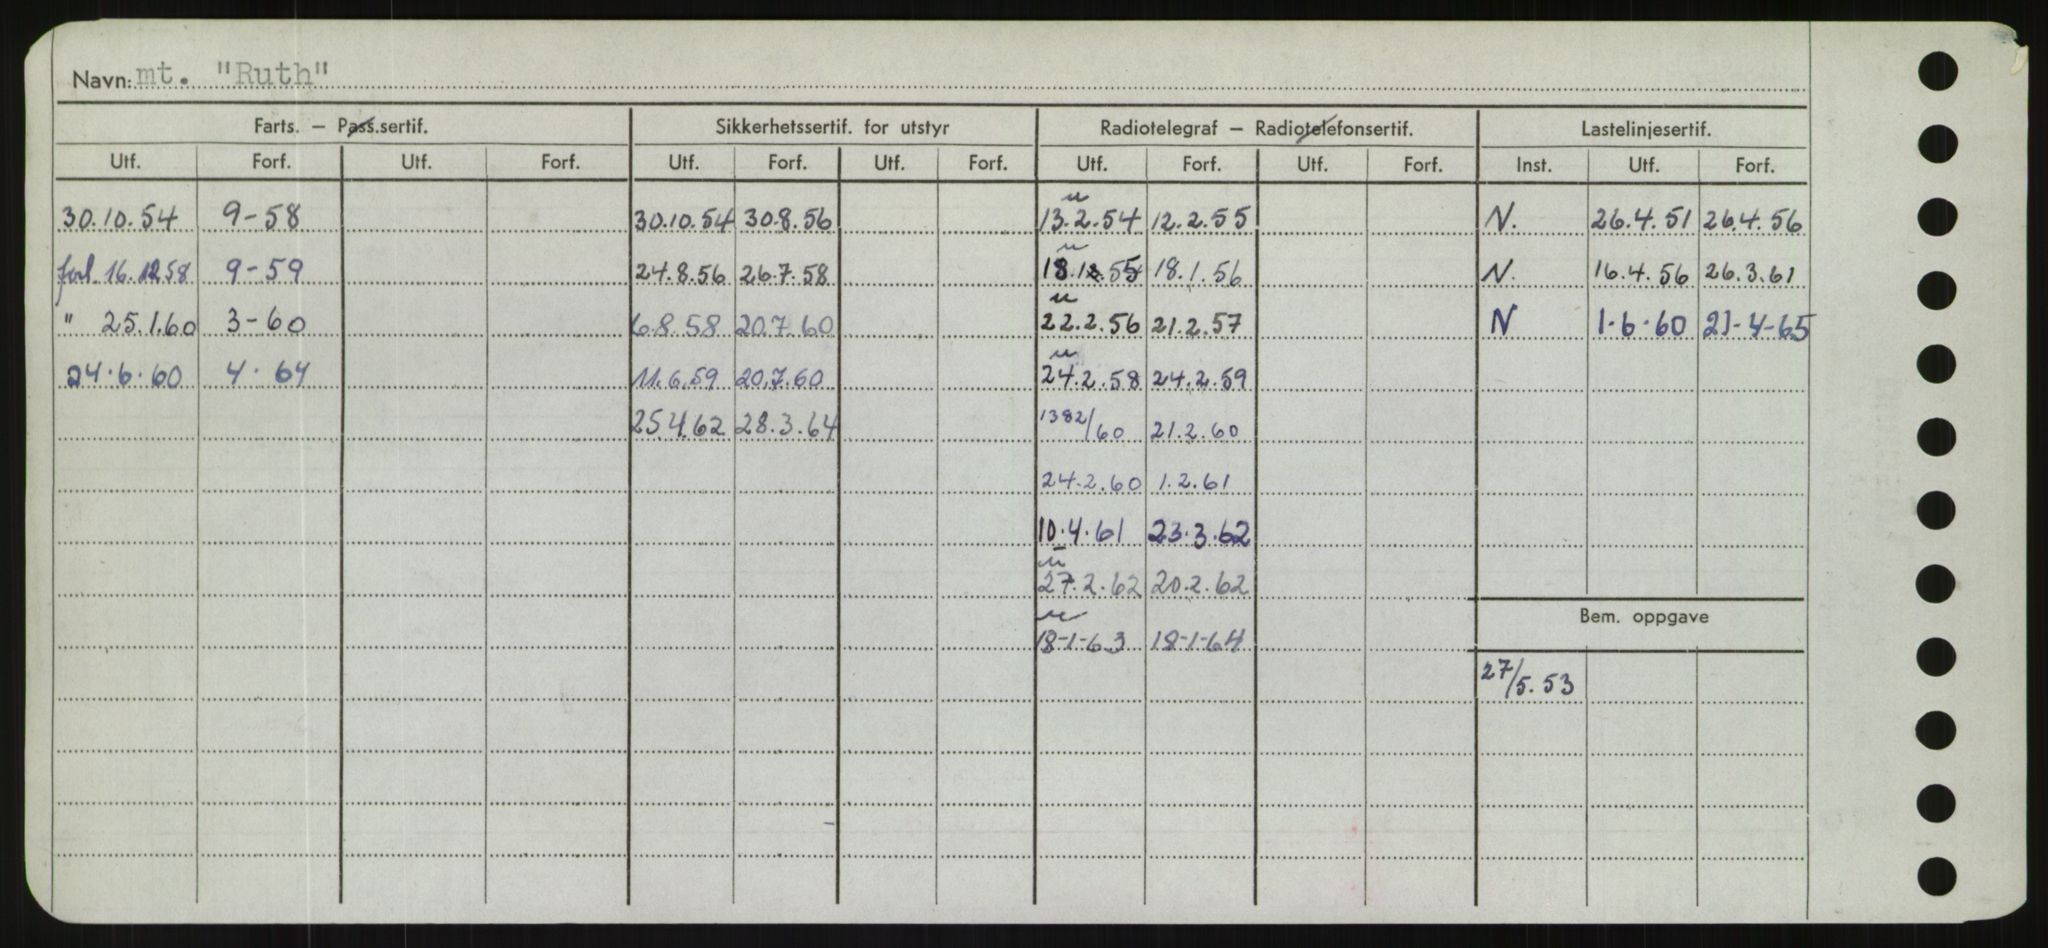 Navn: mt. "Ruth"
Farts. – Pass.sertif. Sikkerhetssertif. for utstyr Radiotelegraf – Radiotelefonsertif. Lastelinjesertif.
Utf. Forf. Utf. Forf. Utf. Forf. Utf. Forf. Utf. Forf. Utf. Forf. Inst. Utf. Forf.
30.10.54 9-58 30.10.54 30.8.56 13.2.54 12.2.55 N. 26.4.51 26.4.56
forl. 16.12.58 9-59 24.8.56 26.7.58 55 18.1.56 N. 16.4.56 26.3.61
" 25.1.60 3-60 6.8.58 20.7.60 22.2.56 21.2.57 N 1.6.60 21-4-65
24.6.60 4.64 11.6.59 20.7.60 24.2.58 24.2.59
25.4.62 28.3.64 1382/60 21.2.60
24.2.60 1.2.61
10.4.61 23.3.62
27.2.62 20.2.62
Bem. oppgave
18-1-63 18-1-64
27/5.53